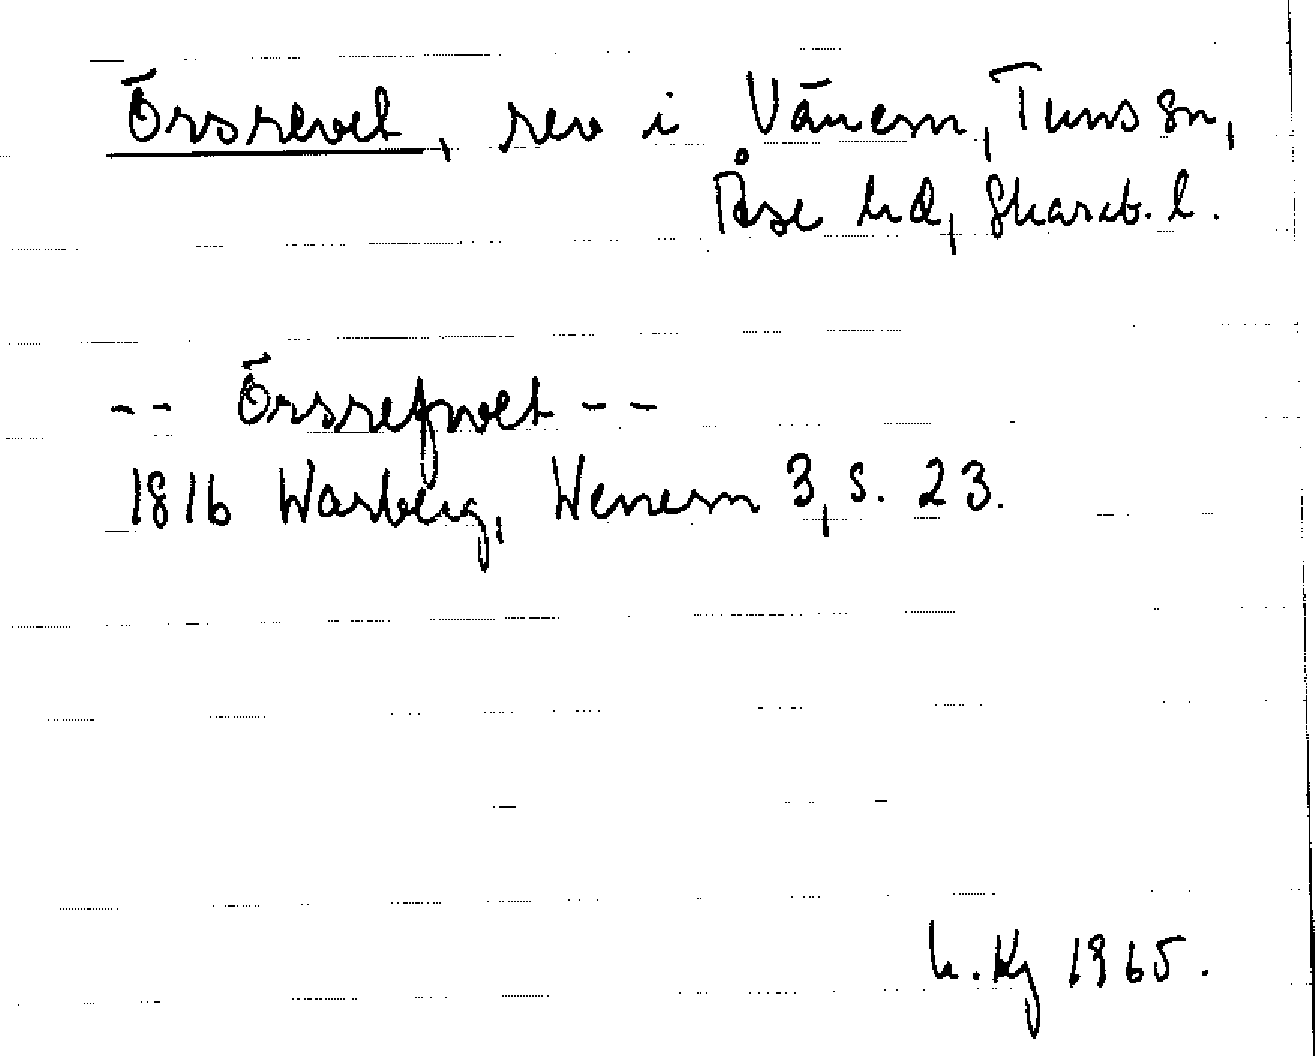 Örsrevet, rev i Vänern, Tuns sn,
Åse hd, Skarab. l.
-- Örsrefwet --
1816 Warberg, Wenern 3, s. 23.
h. Kg 1965.